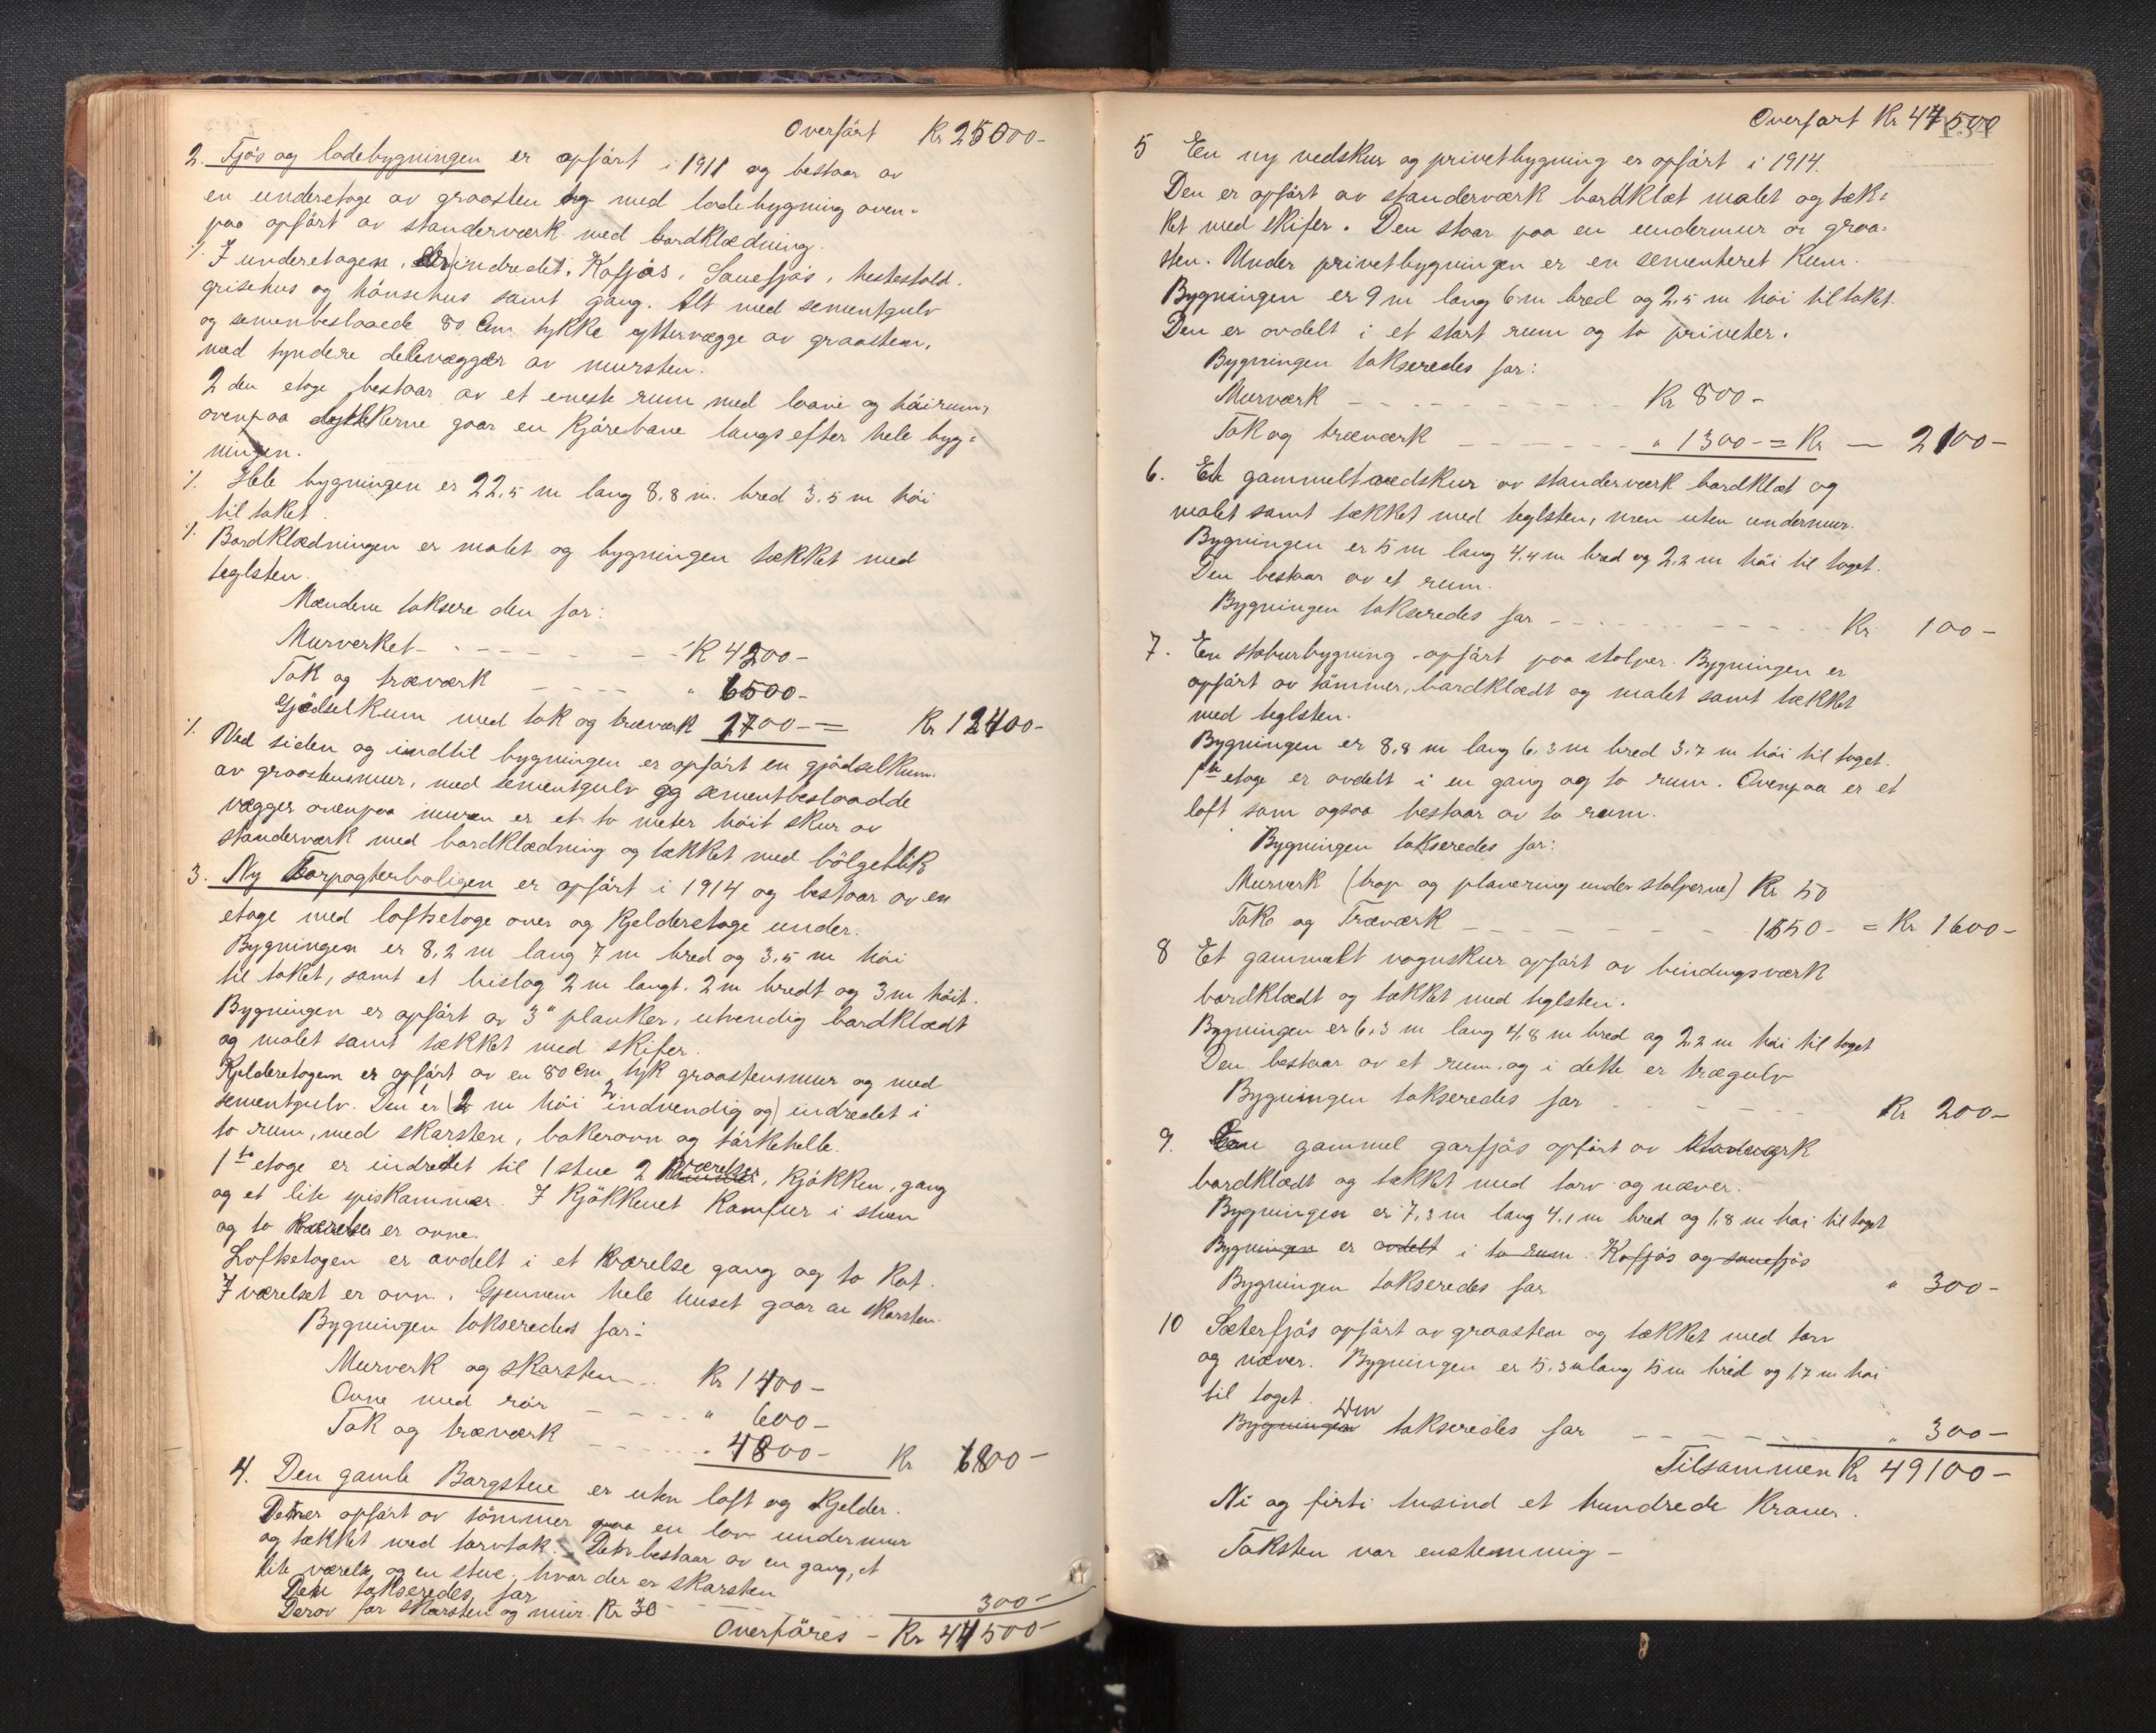 Overført Kr 25000-
2. Fjøs og ladebygningen er opført i 1911 og bestaar av
en underetage av graasten og med ladebygning oven-
paa opført av standerværk med bordklædning.
·/. I underetagen, er indredet, Kofjøs, Sauefjøs, hestestald,
grisehus og hönsehus samt gang. Alt med sementgulv
og semenbeslaaede 80 Cm tykke yttervægge av graasten,
med tyndere delevægger av mursten.
2den etage bestaar av et eneste rum med laave og höirum,
ovenpaa dytlikerne gaar en Kjørebane langs efter hele byg-
ningen.
·/. Hele bygningen er 22,5 m lang 8,8 m. bred 3,5 m höi
til taket.
·/. Bordklædningen er malet og bygningen tækket med
teglsten.
Mændene taksere den for:
Murverket - - - - K 4200-
Tak og træværk - - - - " 6500-
Gjødselkum med tak og træværk 1700- = Kr 12400-
·/. Ved siden og indtil bygningen er opført en gjødselkum.
av graastensmur, med sementgulv og sementbeslaadde
vægger ovenpaa muren er et to meter höit skur av
standerværk med bordklædning og tækket med bölgeblik
3. Ny Forpagterboligen er opført i 1914 og bestaar av en
etage med loftsetage over og Kjelderetage under.
Bygningen er 8,2 m lang 7 m bred og 3,5 m höi
til taket, samt et bislag 2 m langt. 2 m bredt og 3 m höit.
Bygningen er opført av 3" planker, utvendig bordklædt
og malet samt tækket med skifer.
Kjelderetagen er opført av en 80 Cm tyk graastensmur og med
sementgulv. Den er (2 m höi indvendig og) indredet i
to rum, med skorsten, bakerovn og tørkehelle.
1ste etage er indredet til 1 stue 2 værelser, Kjøkken, gang
og et lite spiskammer. I Kjøkkenet Komfur i stuen
og to Værelser er ovne.
Loftsetagen er avdelt i et Værelse gang og to Kot.
I værelset er ovn. Gjennem hele huset gaar en skorsten.
Bygningen takseredes for:
Murverk og skorsten - - Kr 1400-
Ovne med rør - - - - " 600-
Tak og træværk - - - - " 4800- Kr 6800-
4. Den gamle Borgstue er uten loft og Kjelder.
Den er opført av tömmer paa en lav undermur
og tækket med torvtak. Den bestaar av en gang, et
lite værelse og en stue, hvor der er skorsten
Den takseredes for - - - - 300-
Derav for skorsten og mur. Kr 30
Overføres - Kr 44500-
Overført Kr 44500
5 En ny vedskur og privetbygning er opført i 1914.
Den er opført av standerværk bordklæt malet og tæk-
ket med skifer. Den staar paa en undermur av graa-
sten. Under privetbygningen er en sementeret Kum.
Bygningen er 9 m lang 6 m bred og 2,5 m höi til taket.
Den er avdelt i et stort rum og to priveter.
Bygningen takseredes for:
Murværk - - - - Kr 800-
Tak og træværk - - - - " 1300- = Kr - 2100-
6. Et gammelt vedskur av standerværk bordklæt og
malet samt tækket med teglsten, men uten undermur.
Bygningen er 5 m lang 4,4 m bred og 2,2 m höi til taget.
Den bestaar av et rum.
Bygningen takseredes for - - - - Kr 100-
7. En stabursbygning opført paa stolper. Bygningen er
opført av tömmer, bordklædt og malet samt tækket
med teglsten.
Bygningen er 8,8 m lang 6,3 m bred 3,7 m höi til taget.
1ste etage er avdelt i en gang og to rum. Ovenpaa er et
loft som ogsaa bestaar av to rum.
Bygningen takseredes for:
Murverk (trap og planering under stolperne) Kr 50
Tak og Træværk - - - - 1550- = Kr 1600-
8 Et gammelt vognskur opført av bindingsværk
bordklædt og tækket med teglsten.
Bygningen er 6,3 m lang 4,8 m bred og 2,2 m höi til taget
Den bestaar av et rum, og i dette er trægulv
Bygningen takseredes for - - - - Kr 200-
9. En gammel gorfjøs opført av
bordklædt og tækket med torv og næver.
Bygningen er 7,3 m lang 4,1 m bred og 1,8 m höi til taget
Bygningen er avdelt i to rum. Kofjøs og sauefjøs
Bygningen takseredes for " 300-
10 Sæterfjøs opført av graasten og tækket med torv
og næver. Bygningen er 5,3 m lang 5 m bred og 1,7 m höi
til taget.
Bygningen Den takseredes for - - - - " 300-
Tilsammen Kr 49100-
Ni og firti tusind et hundrede Kroner.
Taksten var enstemmig -